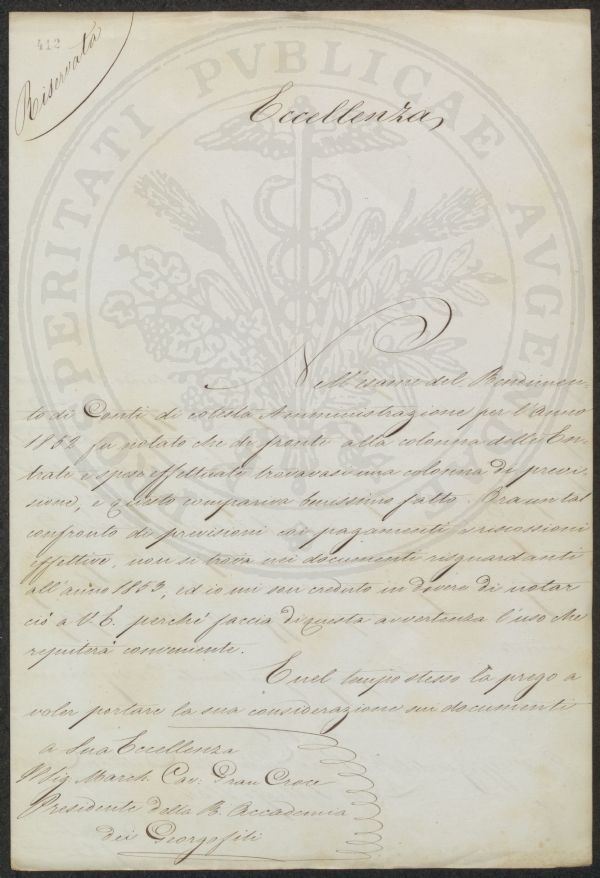 412
Riservata
Eccellenza,
Nell'esame del Rendimen-
to di Conti di cotesta Amministrazione per l'Anno
1852 fu notato che di fronte alla colonna delle En-
trate e spese effettuate trovavasi una colonna di previ-
sione, e questo compariva benissimo fatto. Ora un tal
confronto di previsioni coi pagamenti e riscossioni
effettive, non si trova nei documenti risguardanti
all'anno 1853, ed io mi son creduto in dovere di notar
ciò a V. E. perchè faccia di questa avvertenza l'uso che
reputerà conveniente.
E nel tempo stesso la prego a
voler portare la sua considerazione sui documenti
a Sua Eccellenza
Il Sig. March. Cav. Gran Croce
Presidente della R. Accademia
dei Georgofili
PROSPERITATI PVBLICAE AVGENDAE